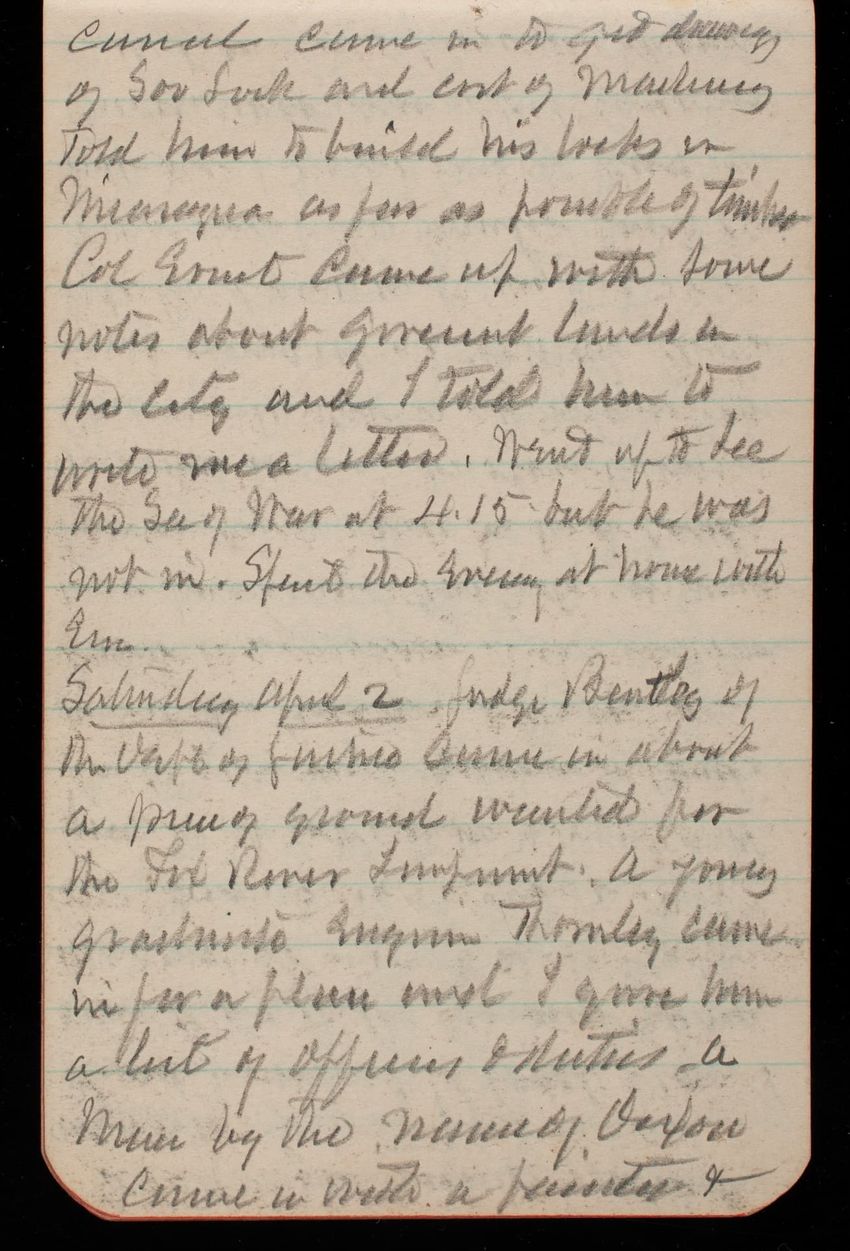 canal came in to get drawings
of Soo Lock and cost of Machinery
Told him to build his locks in
Nicaragua as far as possible of timber
Col Ernst came up with some
notes about Goverment lands in
the city and I told him to
write me a letter. Went up to see
the Sec of War at 4.15 but he was
not in. Spent the Evening at home with
Em.
Saturday April 2. Judge Bentley of
the Dept of Justice came in about
a piece of ground wanted for
the Fox River Improvmt. A young
graduate Engineer Thornley came
in for a place and I gave him
a list of officers & duties a
Man by the name of Dixon
came in with a painter &